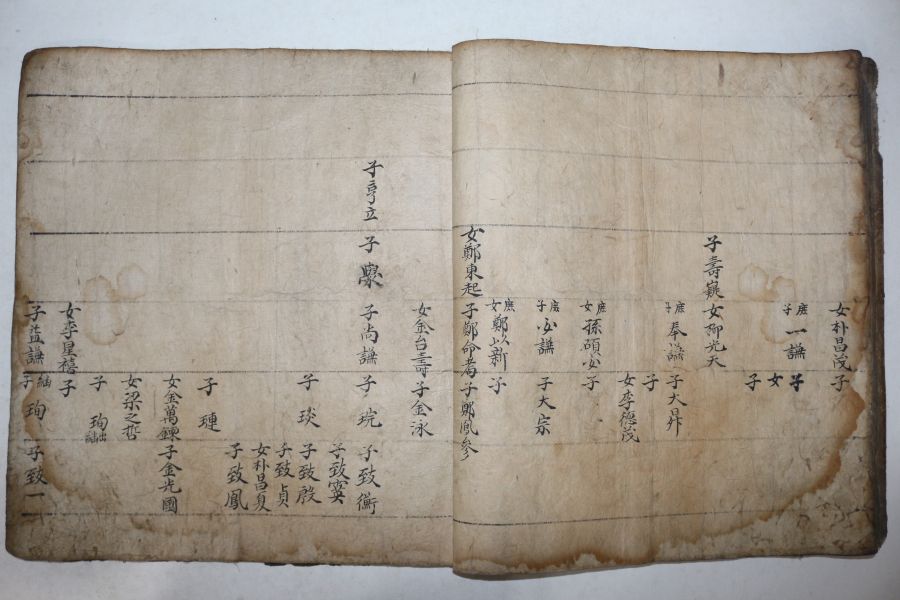 女朴昌茂 子
庶子 一謙 子
女
子
子壽嶷 女柳光天
庶子 奉謙 子大昇
子
女李德茂
庶女 孫碩安 子
庶子 必謙 子大宗
庶女 鄭以新 子
女鄭東起 子鄭命耈 子鄭鳳參
女金台壽 子金泳
子亨立 子 子尚謙 子琓 子致衡
子致寞
子琰 子致殷
子致貞
女朴昌夏
子致鳳
子璉
女金萬鍊 子金光國
女梁之哲
子珣出
女李星禧 子
子益謙 子珣 子致一